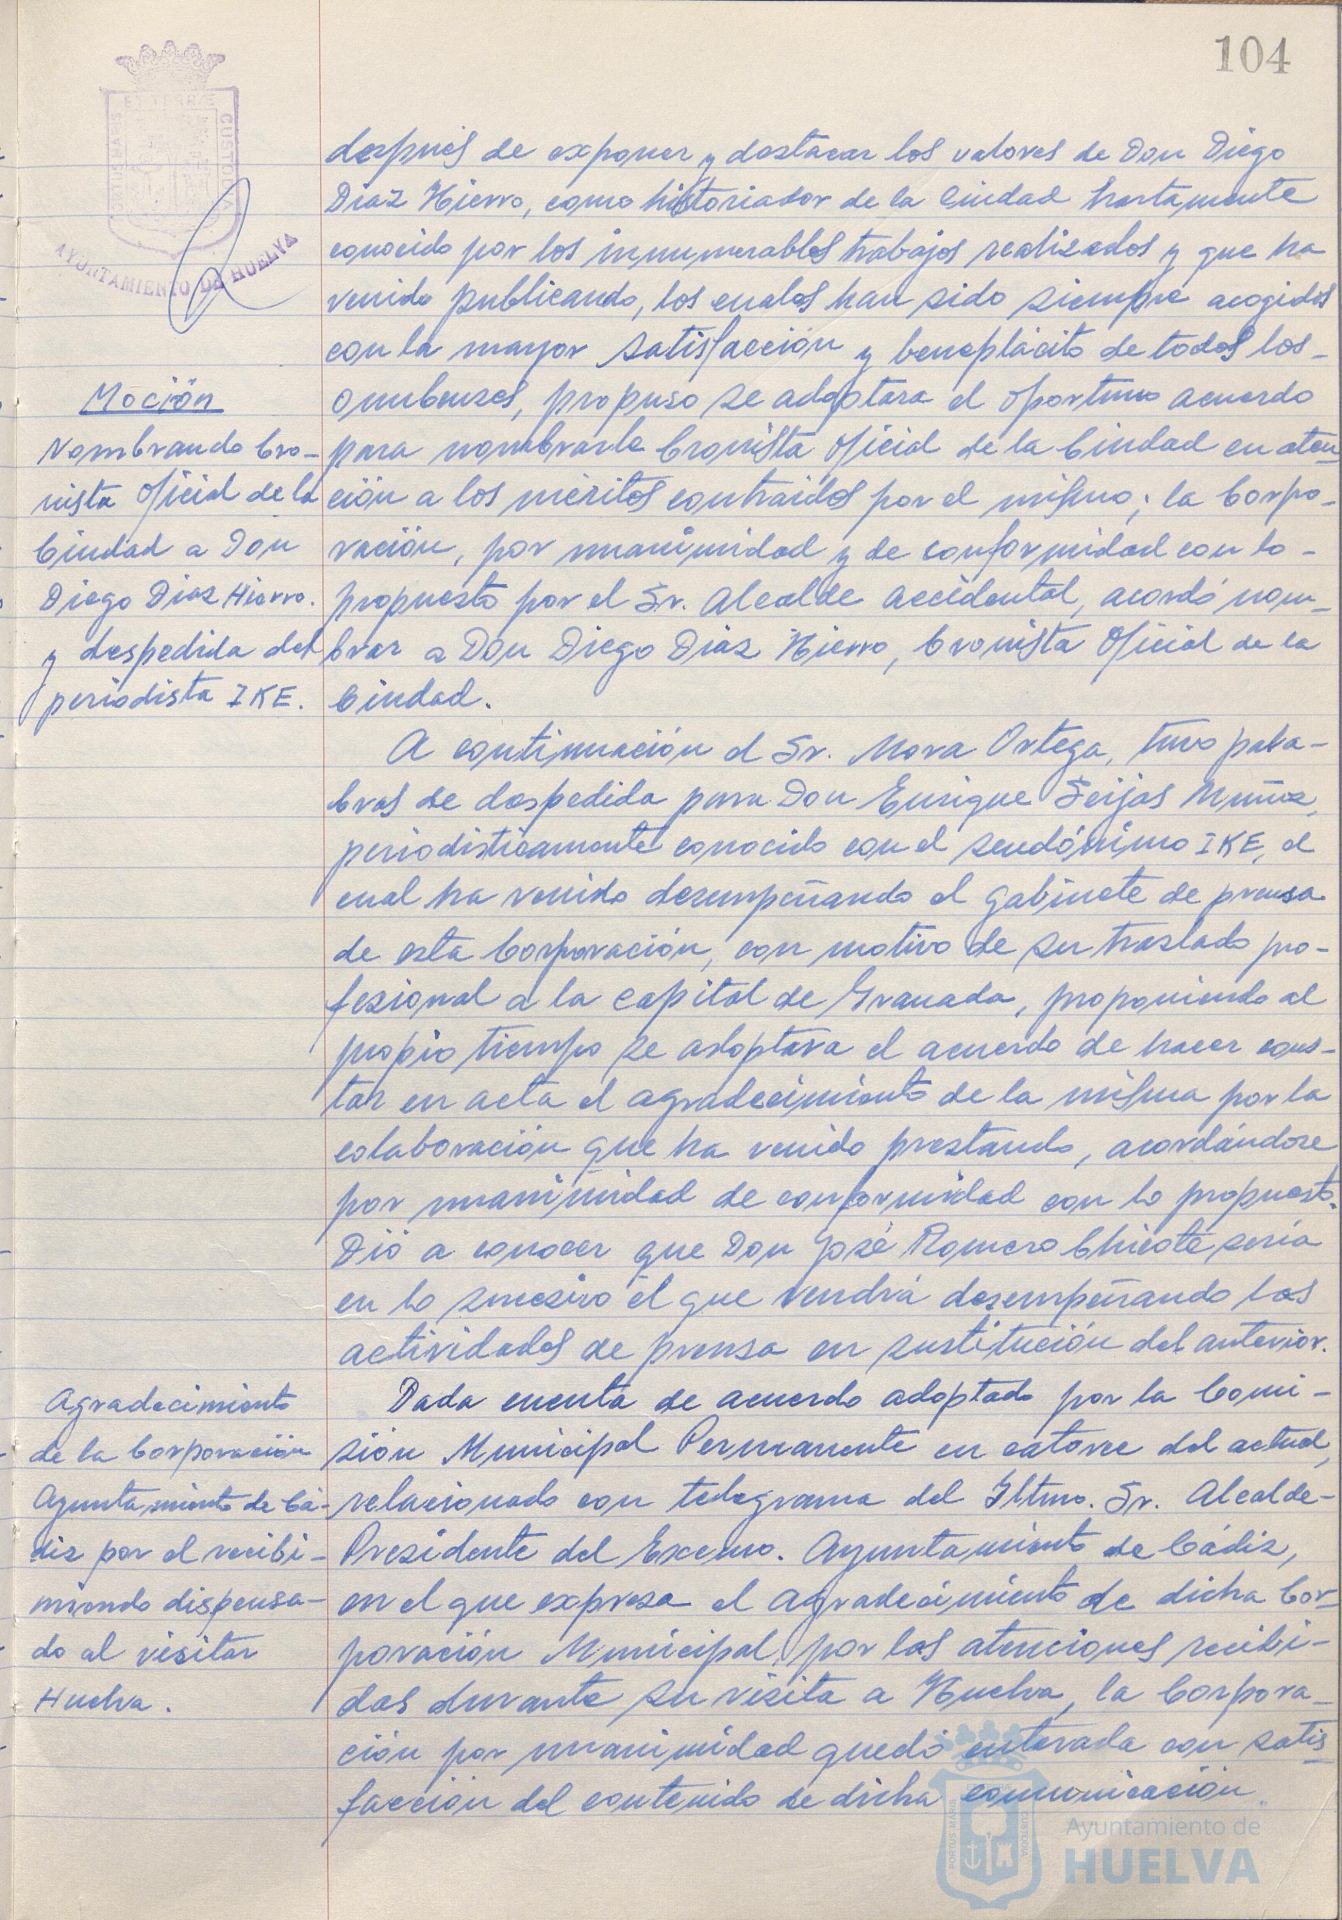 104
PORTUS MARIS ET TERRAE CUSTODIA
AYUNTAMIENTO DE HUELVA
después de exponer y destacar los valores de Don Diego
Díaz Hierro, como historiador de la Ciudad hartamente
conocido por los innumerables trabajos realizados y que ha
venido publicando, los cuales han sido siempre acogidos
con la mayor satisfacción y beneplácito de todos los-
onubenses, propuso se adoptara el oportuno acuerdo
para nombrarle Cronista Oficial de la Ciudad en aten-
ción a los méritos contraídos por el mismo; la Corpo-
ración, por unanimidad y de conformidad con lo-
propuesto por el Sr. Alcalde accidental, acordó nom-
brar a Don Diego Díaz Hierro, Cronista Oficial de la
Ciudad.
Moción
Nombrando Cro-
nista Oficial de la
Ciudad a Don
Diego Díaz Hierro.
y despedida del
periodista IKE.
A continuación el Sr. Mora Ortega, tuvo pala-
bras de despedida para Don Enrique Seijas Muñoz,
periodísticamente conocido con el seudónimo IKE, el
cual ha venido desempeñando el gabinete de prensa
de esta Corporación, con motivo de su traslado pro-
fesional a la capital de Granada, proponiendo al
propio tiempo se adoptara el acuerdo de hacer cons-
tar en acta el agradecimiento de la misma por la
colaboración que ha venido prestando, acordándose
por unanimidad de conformidad con lo propuesto.
Dió a conocer que Don José Romero Chicote sería
en lo sucesivo el que vendrá desempeñando las
actividades de prensa en sustitución del anterior.
Agradecimiento
de la Corporación
Ayuntamiento de Cá-
diz por el recibi-
miendo dispensa-
do al visitar
Huelva.
Dada cuenta de acuerdo adoptado por la Comi-
sión Municipal Permanente en catorce del actual,
relacionado con telegrama del Iltmo. Sr. Alcalde-
Presidente del Excmo. Ayuntamiento de Cádiz,
en el que expresa el agradecimiento de dicha Cor-
poración Municipal, por las atenciones recibi-
das durante su visita a Huelva, la Corpora-
ción por unanimidad quedó enterada con satis-
facción del contenido de dicha comunicación.
Ayuntamiento de
HUELVA